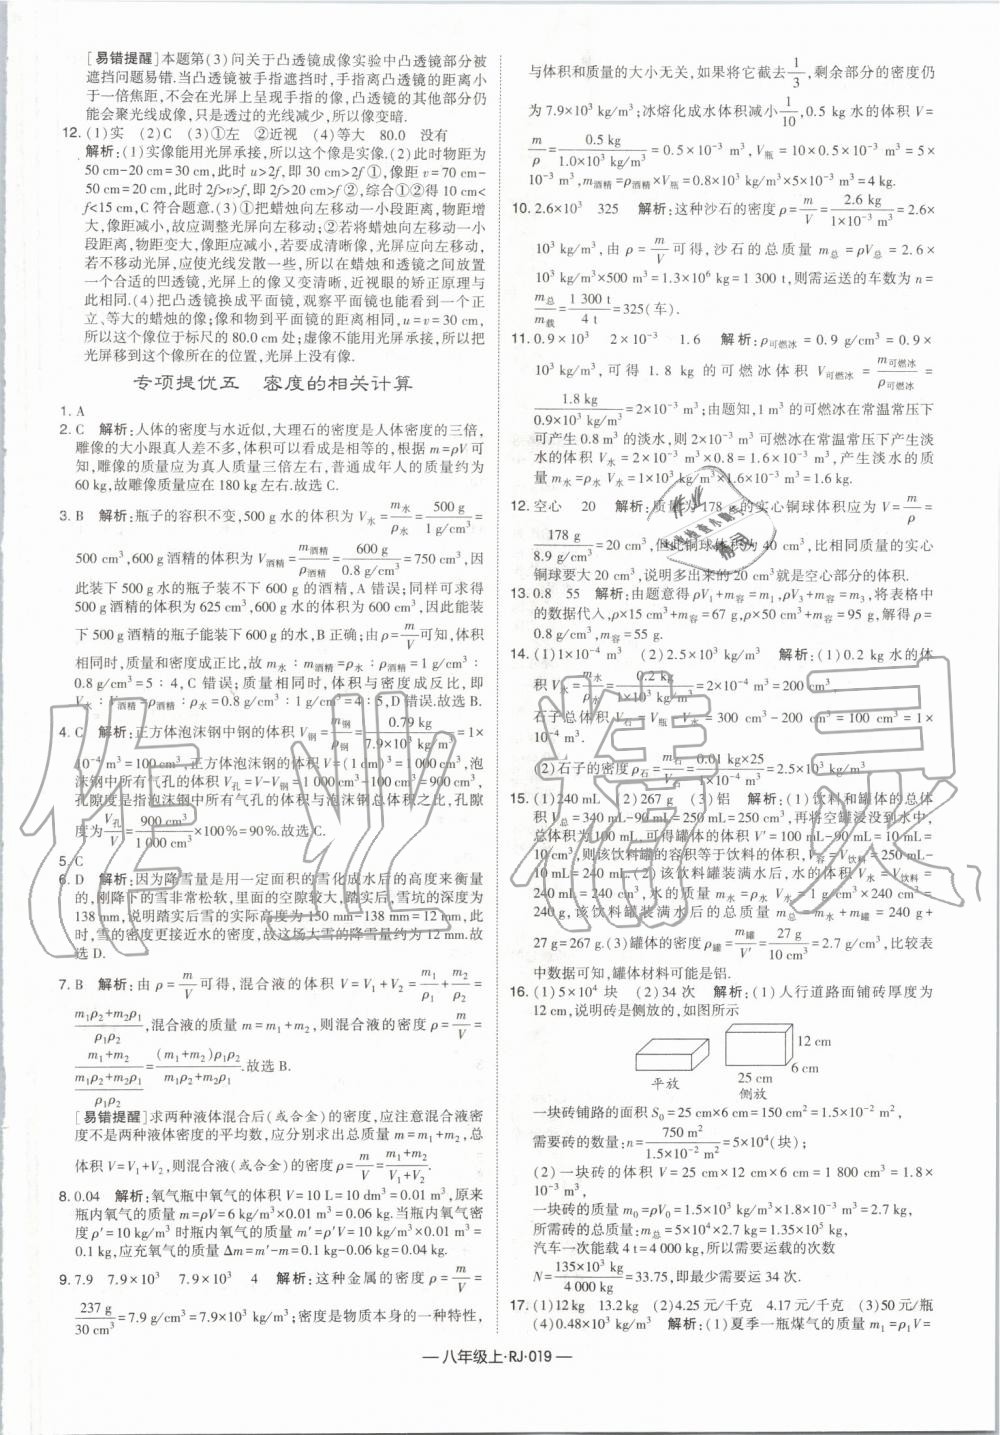 [易错提醒]本题第(3)问关于凸透镜成像实验中凸透镜部分被
遮挡问题易错.当凸透镜被手指遮挡时,手指离凸透镜的距离小
于一倍焦距,不会在光屏上呈现手指的像,凸透镜的其他部分仍
能会聚光线成像,只是透过的光线减少,所以像变暗.
12. (1)实 (2)C (3)①左 ②近视 (4)等大 80.0 没有
解析:(1)实像能用光屏承接,所以这个像是实像.(2)此时物距为
50 cm-20 cm=30 cm,此时u>2f,即30 cm>2f①,像距v=70 cm-
50 cm=20 cm,此时2f>v>f,即2f>20 cm>f②,综合①②得10 cm<
f<15 cm,C符合题意.(3)①把蜡烛向左移动一小段距离,物距
增大,像距应减小,故应调整光屏向左移动;②若将蜡烛向右移动一小
段距离,物距变大,像距应减小,若要成清晰像,光屏应向左移动,
若不移动光屏,应使光线发散一些,所以在蜡烛和透镜之间放一
个合适的凹透镜,光屏上的像又变清晰,近视眼的矫正原理与
此相同.(4)把凸透镜换成平面镜,观察平面镜也能看到一个正
立、等大的蜡烛的像;像和物到平面镜的距离相同,u=v=30 cm,
所以这个像位于标尺的80.0 cm处;虚像不能用光屏承接,所以把
光屏移到这个像所在的位置,光屏上没有像.
专项提优五 密度的相关计算
1. A
2. C 解析:人体的密度与水近似,大理石的密度是人体密度的三倍,
雕像的大小跟真人差不多,体积可以看成是相等的,根据m=ρV可
知,雕像的质量应为真人质量三倍左右,普通成年人的质量约为
60 kg,故雕像质量应在180 kg左右.故选C.
3. B 解析:瓶子的容积不变,500 g水的体积为V水=m水/ρ水=500 g/1 g/cm³=
500 cm³,600 g酒精的体积为V酒精=m酒精/ρ酒精=600 g/0.8 g/cm³=750 cm³,因
此装下500 g水的瓶子装不下600 g的酒精,A错误;同样可求得
500 g酒精的体积为625 cm³,600 g水的体积为600 cm³,因此能装
下500 g酒精的瓶子能装下600 g的水,B正确;由ρ=m/V可知,体积
相同时,质量和密度成正比,故m水∶m酒精=ρ水∶ρ酒精=1 g/cm³∶
0.8 g/cm³=5∶4,C错误;质量相同时,体积与密度成反比,即
V水∶V酒精=ρ酒精∶ρ水=0.8 g/cm³∶1 g/cm³=4∶5,D错误.故选B.
4. C 解析:正方体泡沫钢中钢的体积V钢=m钢/ρ钢=0.79 kg/7.9×10³ kg/m³=1×
10⁻⁴ m³=100 cm³,正方体泡沫钢的体积V=(10 cm)³=1 000 cm³,泡
沫钢中所有气孔的体积V孔=V-V钢=1 000 cm³-100 cm³=900 cm³,
孔隙度是指泡沫钢中所有气孔的体积与泡沫钢总体积之比,孔隙
度为V孔/V=900 cm³/1 000 cm³×100%=90%.故选C.
5. C
6. D 解析:因为降雪量是用一定面积的雪化成水后的高度来衡量
的,刚降下的雪非常松软,里面的空隙较大,踏实后,雪坑的深度为
138 mm,说明踏实后雪的实际高度为150 mm-138 mm=12 mm,此
时,雪的密度更接近水的密度,故这场大雪的降雪量约为12 mm.故
选D.
7. B 解析:由ρ=m/V可得,混合液的体积V=V₁+V₂=m₁/ρ₁+m₂/ρ₂=
(m₁ρ₂+m₂ρ₁)/ρ₁ρ₂,混合液的质量m=m₁+m₂,则混合液的密度ρ=m/V=
(m₁+m₂)/((m₁ρ₂+m₂ρ₁)/ρ₁ρ₂)=(m₁+m₂)ρ₁ρ₂/(m₁ρ₂+m₂ρ₁).故选B.
[易错提醒]求两种液体混合后(或合金)的密度,应注意混合液密
度不是两种液体密度的平均数,应分别求出总质量m=m₁+m₂,总
体积V=V₁+V₂,则混合液(或合金)的密度ρ=m/V=(m₁+m₂)/(V₁+V₂).
8. 0.04 解析:氧气瓶中氧气的体积V=10 L=10 dm³=0.01 m³,原来
瓶内氧气的质量m=ρV=6 kg/m³×0.01 m³=0.06 kg.当瓶内氧气密
度ρ′=10 kg/m³时瓶内氧气的质量m′=ρ′V=10 kg/m³×0.01 m³=
0.1 kg,应充氧气的质量Δm=m′-m=0.1 kg-0.06 kg=0.04 kg.
9. 7.9 7.9×10³ 7.9×10³ 4 解析:这种金属的密度ρ=m/V=
237 g/30 cm³=7.9 g/cm³=7.9×10³ kg/m³;密度是物质本身的一种特性,
与体积和质量的大小无关,如果将它截去1/3,剩余部分的密度仍
为7.9×10³ kg/m³;冰熔化成水体积减小1/10,0.5 kg水的体积V=
m/ρ=0.5 kg/1.0×10³ kg/m³=0.5×10⁻³ m³,V瓶=10×0.5×10⁻³ m³=5×
10⁻³ m³,m酒精=ρ酒精×V瓶=0.8×10³ kg/m³×5×10⁻³ m³=4 kg.
10. 2.6×10³ 325 解析:这种沙石的密度ρ=m/V=2.6 kg/1×10⁻³ m³=2.6×
10³ kg/m³,由ρ=m/V可得,沙石的总质量m总=ρV总=2.6×
10³ kg/m³×500 m³=1.3×10⁶ kg=1 300 t,则需运送的车数为n=
m总/m载=1 300 t/4 t=325(车).
11. 0.9×10³ 2×10⁻³ 1.6 解析:ρ可燃冰=0.9 g/cm³=0.9×
10³ kg/m³,可得1.8 kg的可燃冰体积V可燃冰=m可燃冰/ρ可燃冰=
1.8 kg/0.9×10³ kg/m³=2×10⁻³ m³;由题知,1 m³的可燃冰在常温常压下
可产生0.8 m³的淡水,则2×10⁻³ m³的可燃冰在常温常压下产生淡
水的体积V水=2×10⁻³ m³×0.8=1.6×10⁻³ m³,产生淡水的质
量m水=ρ水V水=1×10³ kg/m³×1.6×10⁻³ m³=1.6 kg.
12. 空心 20 解析:质量为178 g的实心铜球体积应为V=m/ρ=
178 g/8.9 g/cm³=20 cm³,但此铜球体积为40 cm³,比相同质量的实心
铜球要大20 cm³,说明多出来的20 cm³就是空心部分的体积.
13. 0.8 55 解析:由题意得ρV₁+m容=m₁,ρV₃+m容=m₃,将表格中
的数据代入,ρ×15 cm³+m容=67 g,ρ×50 cm³+m容=95 g,解得ρ=
0.8 g/cm³,m容=55 g.
14. (1)1×10⁻⁴ m³ (2)2.5×10³ kg/m³ 解析:(1)0.2 kg水的体
积V水=m水/ρ水=0.2 kg/1×10³ kg/m³=2×10⁻⁴ m³=200 cm³,
石子总体积V石=V瓶-V水=300 cm³-200 cm³=100 cm³=1×
10⁻⁴ m³.
(2)石子的密度ρ石=m石/V石=0.01 kg×25/1×10⁻⁴ m³=2.5×10³ kg/m³.
15. (1)240 mL (2)267 g (3)铝 解析:(1)饮料和罐体的总体
积V总=340 mL-90 mL=250 mL=250 cm³,再将空罐浸没到水中,
总体积为100 mL,可得罐体的体积V′=100 mL-90 mL=10 mL=
10 cm³,则该饮料罐的容积等于饮料的体积,V容=V饮料=250 mL-
10 mL=240 mL.(2)该饮料罐装满水后,水的体积V水=V饮料=
240 mL=240 cm³,水的质量m水=ρ水V水=1 g/cm³×240 cm³=
240 g,该饮料罐装满水后的总质量m总=m水+m罐=240 g+
27 g=267 g.(3)罐体的密度ρ罐=m罐/V′=27 g/10 cm³=2.7 g/cm³,比较表
中数据可知,罐体材料可能是铝.
16. (1)5×10⁴块 (2)34次 解析:(1)人行道路面铺砖厚度为
12 cm,说明砖是侧放的,如图所示
12 cm
6 cm
25 cm
平放 侧放
一块砖铺路的面积S₀=25 cm×6 cm=150 cm²=1.5×10⁻² m²,
需要砖的数量:n=750 m²/1.5×10⁻² m²=5×10⁴(块);
(2)一块砖的体积V=25 cm×12 cm×6 cm=1 800 cm³=1.8×
10⁻³ m³,
一块砖的质量m₀=ρV=1.5×10³ kg/m³×1.8×10⁻³ m³=2.7 kg,
所需砖的总质量:m总=5×10⁴×2.7 kg=1.35×10⁵ kg,
汽车一次能载4 t=4 000 kg,所以需要运载的次数
N=135×10³ kg/4 000 kg=33.75,即最少需运34次.
17. (1)12 kg 13.2 kg (2)4.25元/千克 4.17元/千克 (3)50元/瓶
(4)0.48×10³ kg/m³ 解析:(1)夏季一瓶煤气的质量m₁=ρ₁V=
八年级上·RJ·019